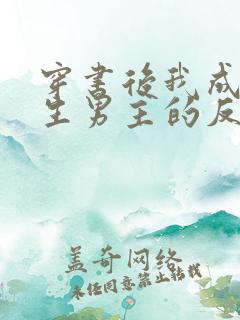 穿书后我成
生男主的反
盖奇网络
未经同意禁止转载